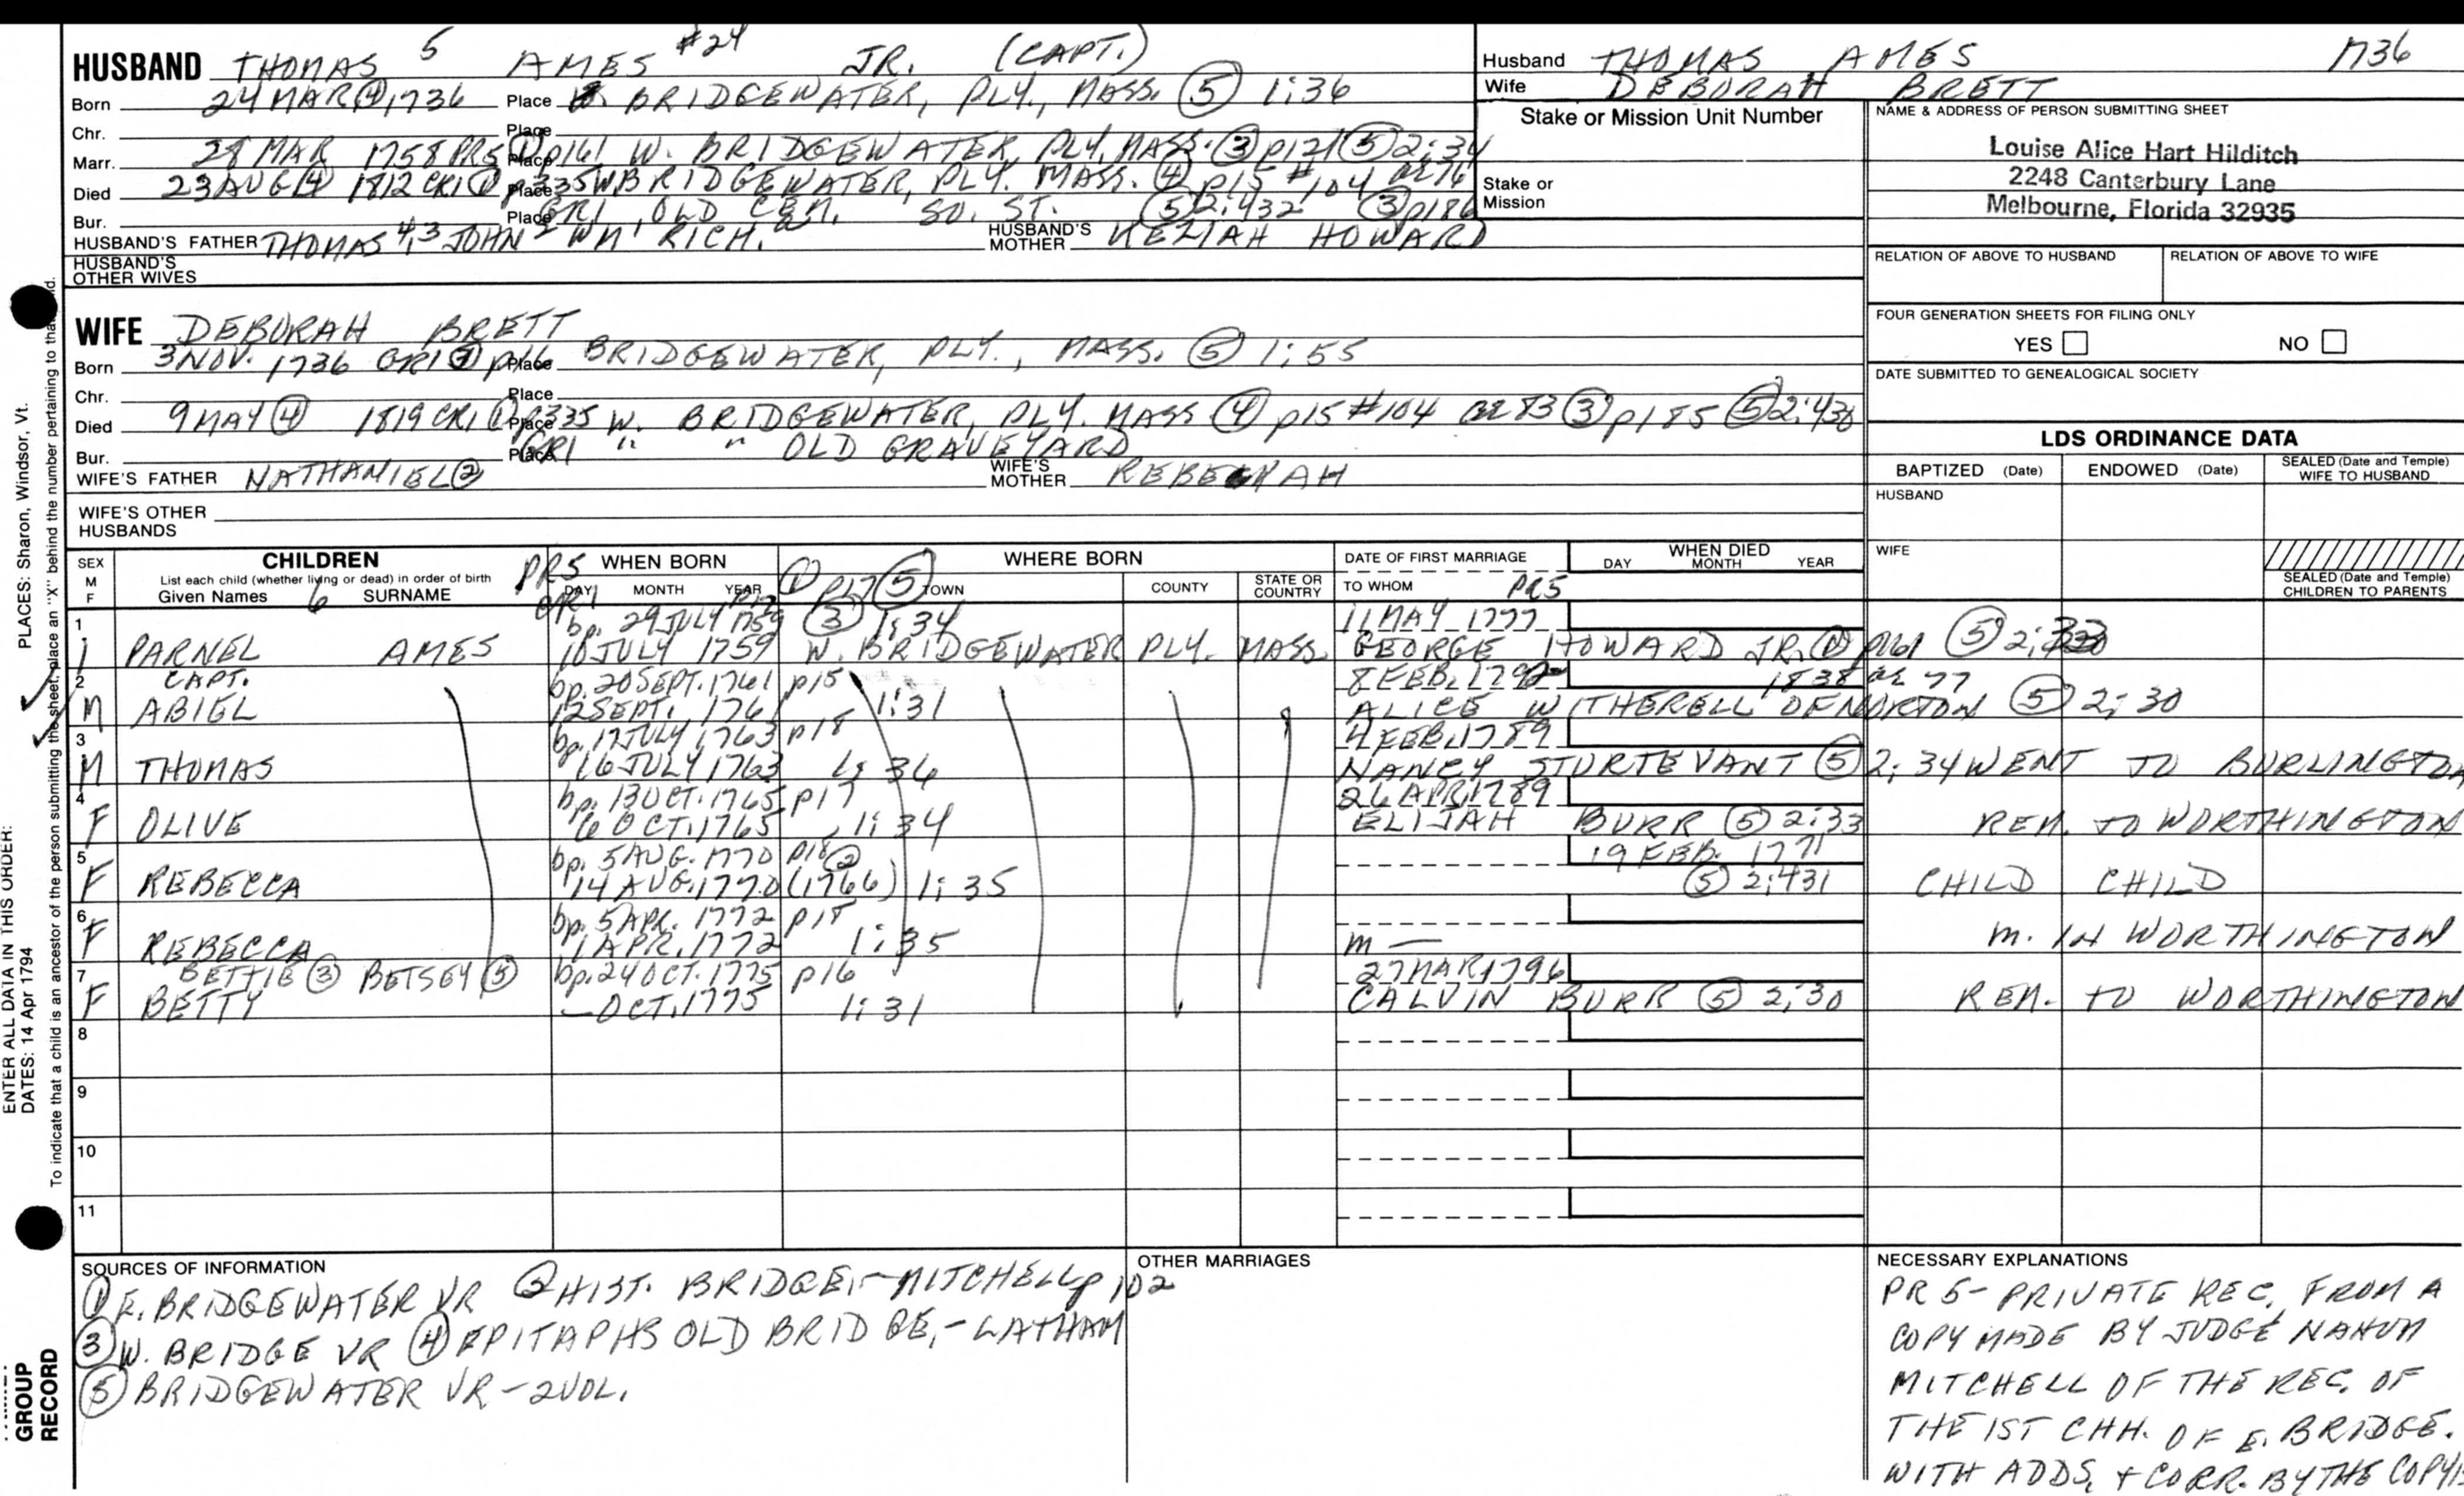 HUSBAND THOMAS 5 AMES #24 JR. (CAPT.)
Born 24 MAR ④ 1736 Place BRIDGEWATER, PLY., MASS. ⑤ 1:36
Chr. Place
Marr. 28 MAR 1758 PR5 ① p161 Place W. BRIDGEWATER, PLY. MASS. ③ p121 ⑤ 2:34
Died 23 AUG ④ 1812 CR1 ① p335 Place W BRIDGEWATER, PLY. MASS. ④ p15 #104 ae 76
Bur. Place GR1, OLD CEM. SO. ST. ⑤ 2:432 ③ p186
HUSBAND'S FATHER THOMAS 4,3 JOHN 2 WM 1 RICH. a HUSBAND'S MOTHER KEZIAH HOWARD
HUSBAND'S OTHER WIVES
Husband THOMAS AMES 1736
Wife DEBORAH BRETT
Stake or Mission Unit Number
Stake or Mission
NAME & ADDRESS OF PERSON SUBMITTING SHEET
Louise Alice Hart Hilditch
2248 Canterbury Lane
Melbourne, Florida 32935
RELATION OF ABOVE TO HUSBAND RELATION OF ABOVE TO WIFE
FOUR GENERATION SHEETS FOR FILING ONLY
YES NO
DATE SUBMITTED TO GENEALOGICAL SOCIETY
WIFE DEBORAH BRETT
Born 3 NOV. 1736 Place BRIDGEWATER, PLY., MASS. ⑤ 1:55
Chr. Place
Died 9 MAY ④ 1819 CR1 ① p335 Place W. BRIDGEWATER, PLY. MASS ④ p15 #104 ae 83 ③ p185 ⑤ 2:430
Bur. Place GR1 " " OLD GRAVEYARD
WIFE'S FATHER NATHANIEL ② WIFE'S MOTHER REBEKAH
WIFE'S OTHER HUSBANDS
LDS ORDINANCE DATA
BAPTIZED (Date) ENDOWED (Date) SEALED (Date and Temple) WIFE TO HUSBAND
HUSBAND
WIFE
SEALED (Date and Temple) CHILDREN TO PARENTS
SEX M F
CHILDREN
List each child (whether living or dead) in order of birth
Given Names 6 SURNAME
PR5 WHEN BORN
DAY MONTH YEAR
① p17 ⑤
WHERE BORN
TOWN COUNTY STATE OR COUNTRY
DATE OF FIRST MARRIAGE
TO WHOM PR5
WHEN DIED
DAY MONTH YEAR
1 bp. 29 JULY 1759 ③ 1:34 11 MAY 1777
PARNEL AMES 10 JULY 1759 W. BRIDGEWATER PLY. MASS. GEORGE HOWARD JR. ① p161 ⑤
2 CAPT. bp. 20 SEPT. 1761 p15 8 FEB. 1792 1838 ae 77
M ABIEL 12 SEPT. 1761 1:31 ALICE WITHERELL OF NORTON ⑤ 2:30
3 bp. 17 JULY 1763 p18 4 FEB. 1789
M THOMAS 16 JULY 1763 1:36 NANCY STURTEVANT ⑤ 2:34 WENT TO BURLINGTON
4 bp. 13 OCT. 1765 p17 26 APR 1789
F OLIVE 6 OCT. 1765 1:34 ELIJAH BURR ⑤ 2:33 REM. TO WORTHINGTON
5 bp. 5 AUG. 1770 p18 ② 19 FEB. 1771
F REBECCA 14 AUG. 1770 (1766) 1:35 ⑤ 2:431 CHILD CHILD
6 bp. 5 APR. 1772 p18
F REBECCA 1 APR. 1772 1:35 m — m. IN WORTHINGTON
7 BETTIE ③ BETSEY ⑤ bp. 24 OCT. 1775 p16 27 MAR 1796
F BETTY — OCT. 1775 1:31 CALVIN BURR ⑤ 2:30 REM. TO WORTHINGTON
8
9
10
11
SOURCES OF INFORMATION
① E. BRIDGEWATER VR ② HIST. BRIDGE. - MITCHELL p 102
③ W. BRIDGE VR ④ EPITAPHS OLD BRIDGE. - LATHAM
⑤ BRIDGEWATER VR - 2 VOL.
OTHER MARRIAGES
NECESSARY EXPLANATIONS
PR 5 - PRIVATE REC. FROM A
COPY MADE BY JUDGE NAHUM
MITCHELL OF THE REC. OF
THE 1ST CHH. OF E. BRIDGE.
WITH ADDS, + CORR. BY THE
ENTER ALL DATA IN THIS ORDER:
DATES: 14 Apr 1794 PLACES: Sharon, Windsor, Vt.
To indicate that a child is an ancestor of the person submitting the sheet, place an "X" behind the number pertaining to that
GROUP
RECORD